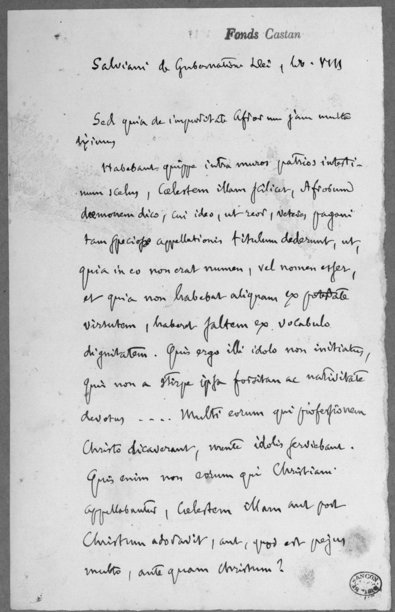 Fonds Castan
Salviani de Gubernatione Dei, lib. VIII
Sed quia de impuritate Afrorum jam multa
diximus
Habebant quippe intra muros patrios intesti-
num scelus, Cœlestem illam scilicet, Afrorum
dæmonem dico, cui ideo, ut reor, veteres pagani
tam speciosæ appellationis titulum dederunt, ut,
quia in eo non erat numen, vel nomen esset,
et quia non habebat aliquam ex potestate
virtutem, haberet saltem ex vocabulo
dignitatem. Quis ergo illi idolo non initiatus,
quis non a stirpe ipsa forsitan ac nativitate
devotus .... Multi eorum qui professionem
Christo dicaverant, mente idolis serviebant.
Quis enim non eorum qui Christiani
appellabantur, Cœlestem illam aut post
Christum adoravit, aut, quod est pejus
multo, ante quam Christum?